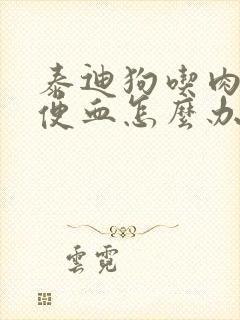 泰迪狗喫肉
便血怎麼办
雲霓